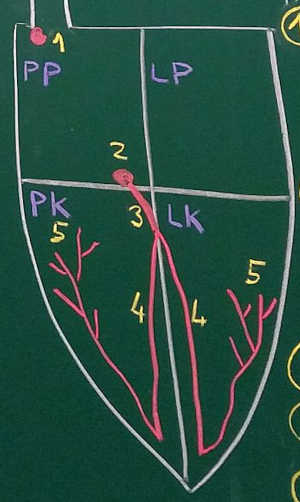 1
PP LP
2
PK 3 LK
5 5
4 4